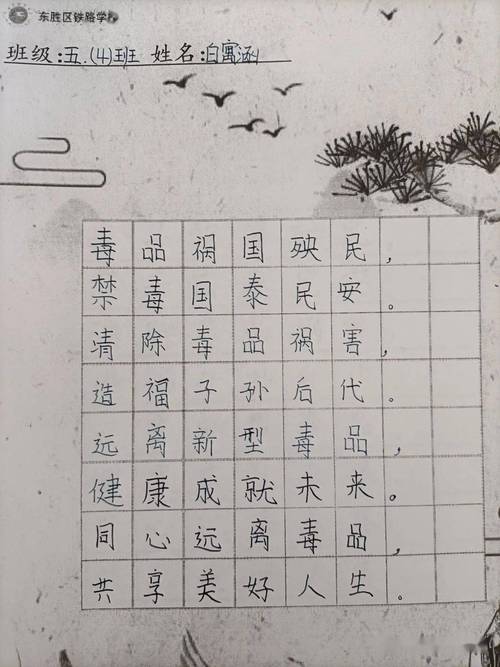 东胜区铁路学
班级:五.(4)班 姓名:白寓涵
毒品祸国殃民,
禁毒国泰民安。
清除毒品祸害,
造福子孙后代。
远离新型毒品,
健康成就未来。
同心远离毒品,
共享美好人生。